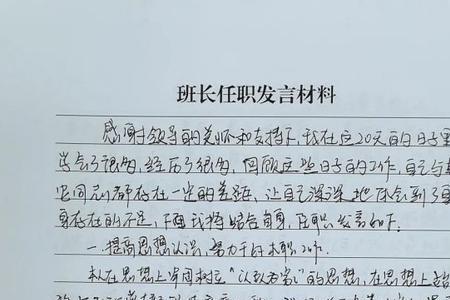 班长任职发言材料
感谢领导的关怀和支持下,我在这20天的日子里
学会了很多,经历了很多,回顾这些日子的工作,自己与
同志们都存在一定的差距,让自己深深地体会到了
身存在的不足,下面我将结合自身,任职发言如下。
一、提高思想认识,努力干好本职工作。
从在思想上牢固树立"以队为家"的思想,在思想上